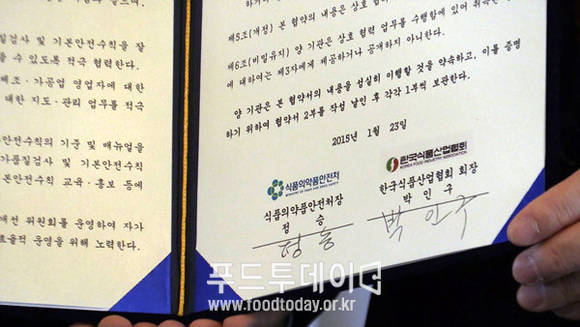 질검사 및 기본안전수칙을 잘
수 있도록 적극 협력한다.
제조·가공업 영업자에 대한
대한 지도·관리 업무를 적극
안전수칙의 기준 및 매뉴얼을
가품질검사 및 기본안전수칙
본안전수칙 교육·홍보 등에
개선 위원회를 운영하여 자가
효율적 운영을 위해 노력한다.
제5조(개정) 본 협약의 내용은 상호
제6조(비밀유지) 양 기관은 상호 협력 업무를 수행함에 있어
에 대하여는 제3자에게 제공하거나 공개하지 아니한다.
양 기관은 본 협약서의 내용을 성실히 이행할 것을 약속하고, 이를 증명
하기 위하여 협약서 2부를 작성 날인 후 각각 1부씩 보관한다.
2015년 1월 23일
식품의약품안전처
MINISTRY OF FOOD AND DRUG SAFETY
식품의약품안전처장
정 승
정승
한국식품산업협회
KOREA FOOD INDUSTRY ASSOCIATION
한국식품산업협회 회장
박 인 구
박인구
푸드투데이
www.foodtoday.or.kr